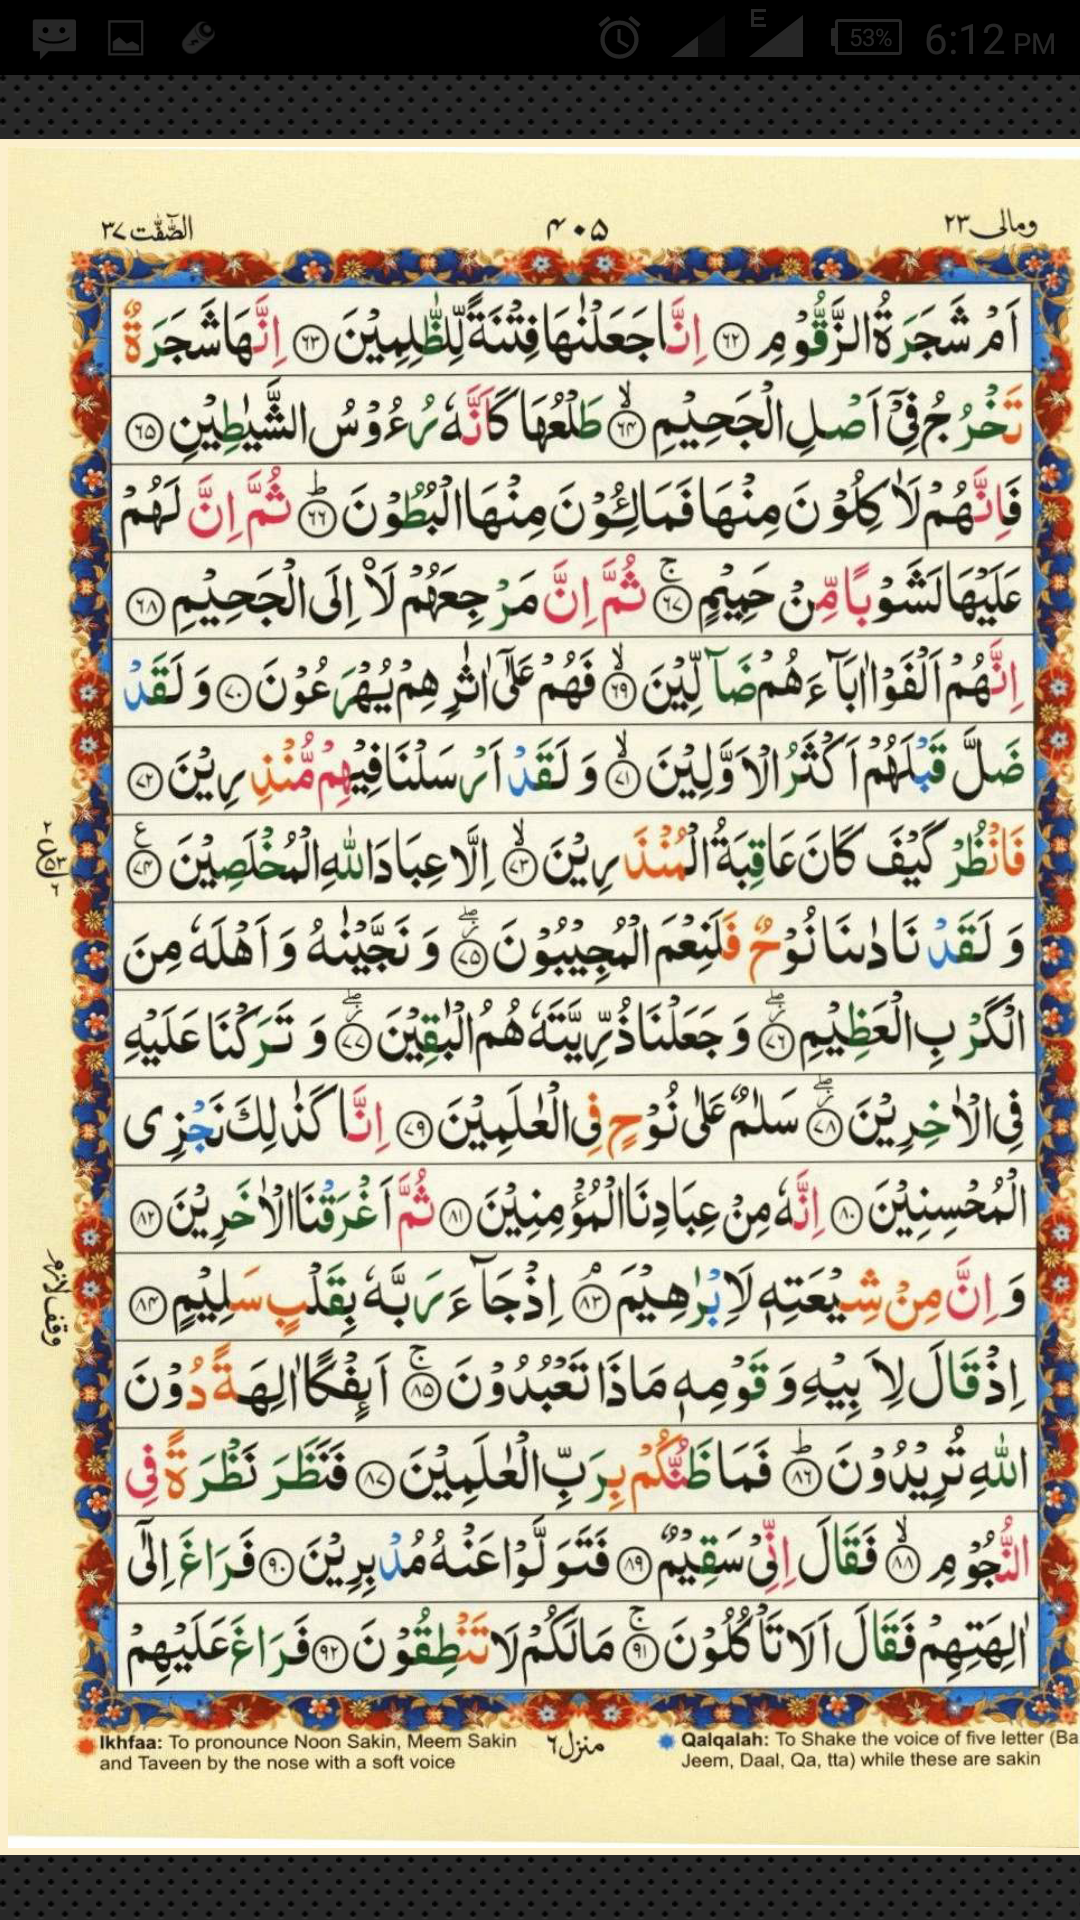 53% 6:12 PM
E
ومالی ۲۳
۴۰۵
الصّٰٓفّٰت ۳۷
اَمْ شَجَرَةُ الزَّقُّوْمِ ﴿۶۲﴾ اِنَّا جَعَلْنٰهَا فِتْنَةً لِّلظّٰلِمِيْنَ ﴿۶۳﴾ اِنَّهَا شَجَرَةٌ
تَخْرُجُ فِيْٓ اَصْلِ الْجَحِيْمِ ﴿۶۴﴾ۙ طَلْعُهَا كَاَنَّهٗ رُءُوْسُ الشَّيٰطِيْنِ ﴿۶۵﴾
فَاِنَّهُمْ لَاٰكِلُوْنَ مِنْهَا فَمَالِـُٔوْنَ مِنْهَا الْبُطُوْنَ ﴿۶۶﴾ؕ ثُمَّ اِنَّ لَهُمْ
عَلَيْهَا لَشَوْبًا مِّنْ حَمِيْمٍ ﴿۶۷﴾ۚ ثُمَّ اِنَّ مَرْجِعَهُمْ لَا۠اِلَى الْجَحِيْمِ ﴿۶۸﴾
اِنَّهُمْ اَلْفَوْا اٰبَآءَهُمْ ضَآلِّيْنَ ﴿۶۹﴾ۙ فَهُمْ عَلٰٓى اٰثٰرِهِمْ يُهْرَعُوْنَ ﴿۷۰﴾ وَلَقَدْ
ضَلَّ قَبْلَهُمْ اَكْثَرُ الْاَوَّلِيْنَ ﴿۷۱﴾ۙ وَلَقَدْ اَرْسَلْنَا فِيْهِمْ مُّنْذِرِيْنَ ﴿۷۲﴾
فَانْظُرْ كَيْفَ كَانَ عَاقِبَةُ الْمُنْذَرِيْنَ ﴿۷۳﴾ۙ اِلَّا عِبَادَ اللّٰهِ الْمُخْلَصِيْنَ ﴿۷۴﴾ع
وَلَقَدْ نَادٰىنَا نُوْحٌ فَلَنِعْمَ الْمُجِيْبُوْنَ ﴿۷۵﴾ۖ وَنَجَّيْنٰهُ وَاَهْلَهٗ مِنَ
الْكَرْبِ الْعَظِيْمِ ﴿۷۶﴾ۖ وَجَعَلْنَا ذُرِّيَّتَهٗ هُمُ الْبٰقِيْنَ ﴿۷۷﴾ۖ وَتَرَكْنَا عَلَيْهِ
فِى الْاٰخِرِيْنَ ﴿۷۸﴾ۖ سَلٰمٌ عَلٰى نُوْحٍ فِى الْعٰلَمِيْنَ ﴿۷۹﴾ اِنَّا كَذٰلِكَ نَجْزِى
الْمُحْسِنِيْنَ ﴿۸۰﴾ اِنَّهٗ مِنْ عِبَادِنَا الْمُؤْمِنِيْنَ ﴿۸۱﴾ ثُمَّ اَغْرَقْنَا الْاٰخَرِيْنَ ﴿۸۲﴾
وَاِنَّ مِنْ شِيْعَتِهٖ لَاِبْرٰهِيْمَ ﴿۸۳﴾ۘ اِذْ جَآءَ رَبَّهٗ بِقَلْبٍ سَلِيْمٍ ﴿۸۴﴾
وقف لازم
اِذْ قَالَ لِاَبِيْهِ وَقَوْمِهٖ مَاذَا تَعْبُدُوْنَ ﴿۸۵﴾ۚ اَئِفْكًا اٰلِهَةً دُوْنَ
اللّٰهِ تُرِيْدُوْنَ ﴿۸۶﴾ؕ فَمَا ظَنُّكُمْ بِرَبِّ الْعٰلَمِيْنَ ﴿۸۷﴾ فَنَظَرَ نَظْرَةً فِى
النُّجُوْمِ ﴿۸۸﴾ۙ فَقَالَ اِنِّىْ سَقِيْمٌ ﴿۸۹﴾ فَتَوَلَّوْا عَنْهُ مُدْبِرِيْنَ ﴿۹۰﴾ فَرَاغَ اِلٰٓى
اٰلِهَتِهِمْ فَقَالَ اَلَا تَاْكُلُوْنَ ﴿۹۱﴾ۚ مَالَكُمْ لَا تَنْطِقُوْنَ ﴿۹۲﴾ فَرَاغَ عَلَيْهِمْ
Ikhfaa: To pronounce Noon Sakin, Meem Sakin
and Taveen by the nose with a soft voice
منزل ۶
Qalqalah: To Shake the voice of five letter (Ba
Jeem, Daal, Qa, tta) while these are sakin